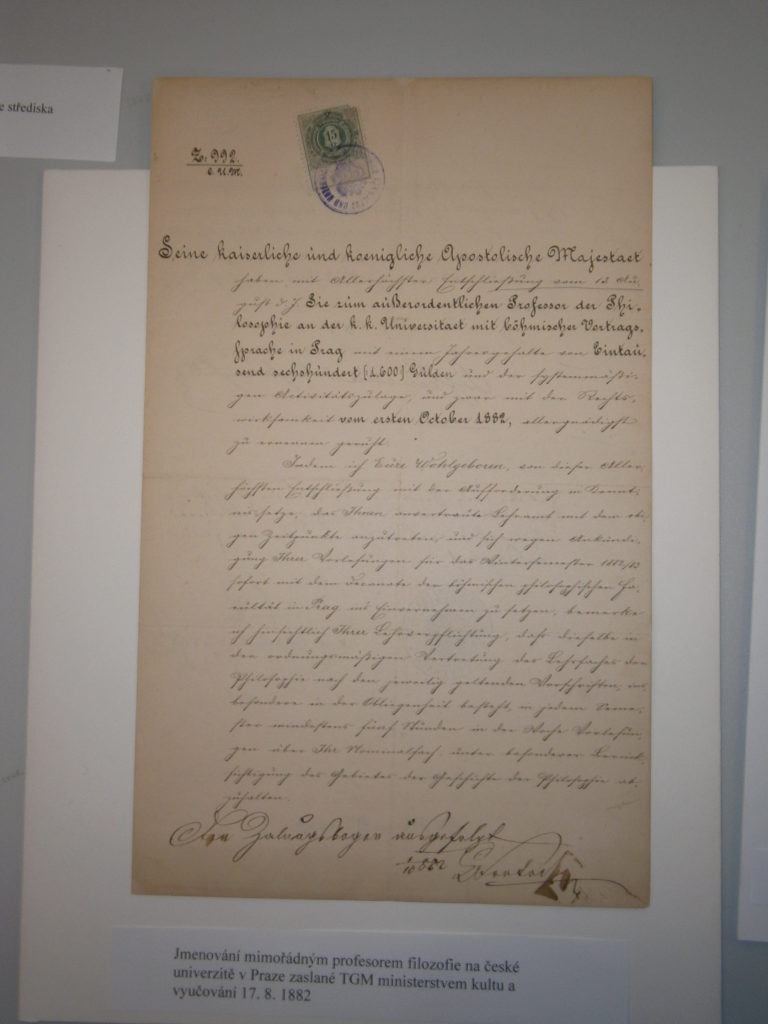 e střediska
15
Z. 992.
C.U.M.
Seine kaiserliche und koenigliche Apostolische Majestaet
haben mit Allerhöchster Entschließung vom 12 Au-
gust d. J. Sie zum außerordentlichen Professor der Phi-
losophie an der k. k. Universitaet mit böhmischer Vortrags-
sprache in Prag mit einem Jahresgehalte von Eintau-
send sechshundert (1.600) Gulden und der systemmäßi-
gen Activitätszulage, und zwar mit der Rechts-
wirksamkeit vom ersten October 1882, allergnädigst
zu ernennen geruht.
Indem ich Eure Wohlgeboren, von dieser Aller-
höchsten Entschließung mit der Aufforderung in Kennt-
nis setze, das Ihnen anvertraute Lehramt mit dem obi-
gen Zeitpunkte anzutreten, und sich wegen Ankündi-
gung Ihrer Vorlesungen für das Wintersemester 1882/83
sofort mit dem Decanate der böhmischen philosophischen Fa-
cultät in Prag ins Einvernehmen zu setzen, bemerke
ich hinsichtlich Ihrer Lehrverpflichtung, daß dieselbe in
der ordnungsmäßigen Vertretung des Lehrfaches der
Philosophie nach den jeweilig geltenden Vorschriften, ins-
besondere in der Obliegenheit besteht, in jedem Seme-
ster mindestens fünf Stunden in der Woche Vorlesun-
gen über Ihr Nominalfach, unter besonderer Berück-
sichtigung des Gebietes der Geschichte der Philosophie ab-
zuhalten.
ausgefolgt
Jmenování mimořádným profesorem filozofie na české
univerzitě v Praze zaslané TGM ministerstvem kultu a
vyučování 17. 8. 1882